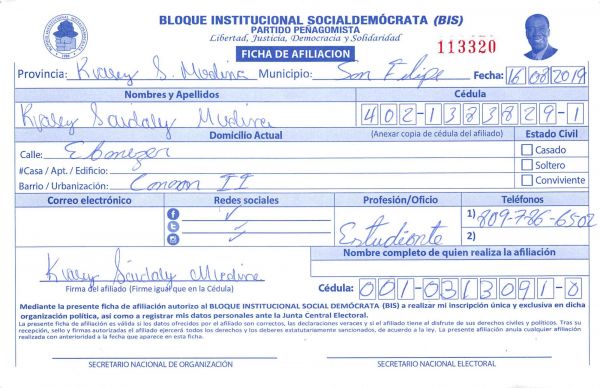 BLOQUE INSTITUCIONAL SOCIALDEMÓCRATA (BIS)
PARTIDO PEÑAGOMISTA
Libertad, Justicia, Democracia y Solidaridad
FICHA DE AFILIACION
113320
Provincia: Kialey S. Medina Municipio: San Felipe Fecha: 16/08/2019
Nombres y Apellidos Cédula
Kialey Saidaly Medina 402-1383829-1
Domicilio Actual (Anexar copia de cédula del afiliado) Estado Civil
Calle: Ebenezer Casado
#Casa / Apt. / Edificio: Soltero
Barrio / Urbanización: II Conviviente
Correo electrónico Redes sociales Profesión/Oficio Teléfonos
Estudiante
1) 809-786-6502
2)
Nombre completo de quien realiza la afiliación
Kialey Saidaly Medina
Firma del afiliado (Firme igual que en la Cédula) Cédula: 001-0313091-0
Mediante la presente ficha de afiliación autorizo al BLOQUE INSTITUCIONAL SOCIAL DEMÓCRATA (BIS) a realizar mi inscripción única y exclusiva en dicha
organización política, así como a registrar mis datos personales ante la Junta Central Electoral.
La presente ficha de afiliación es válida si los datos ofrecidos por el afiliado son correctos, las declaraciones veraces y si el afiliado tiene el disfrute de sus derechos civiles y políticos. Tras su
recepción, sello y firmas autorizadas el afiliado ejercerá todos los derechos y los deberes estatutariamente sancionados, de acuerdo a la ley. La presente afiliación anula cualquier afiliación
realizada con anterioridad a la fecha que aparece en esta ficha.
SECRETARIO NACIONAL DE ORGANIZACIÓN SECRETARIO NACIONAL ELECTORAL